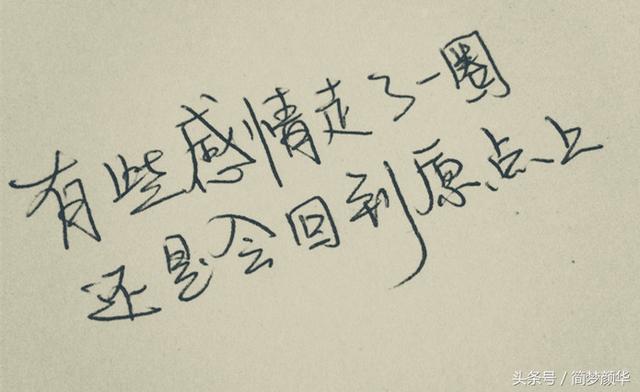 有些感情走了一圈
还是会回到原点上
头条号/简梦颜华